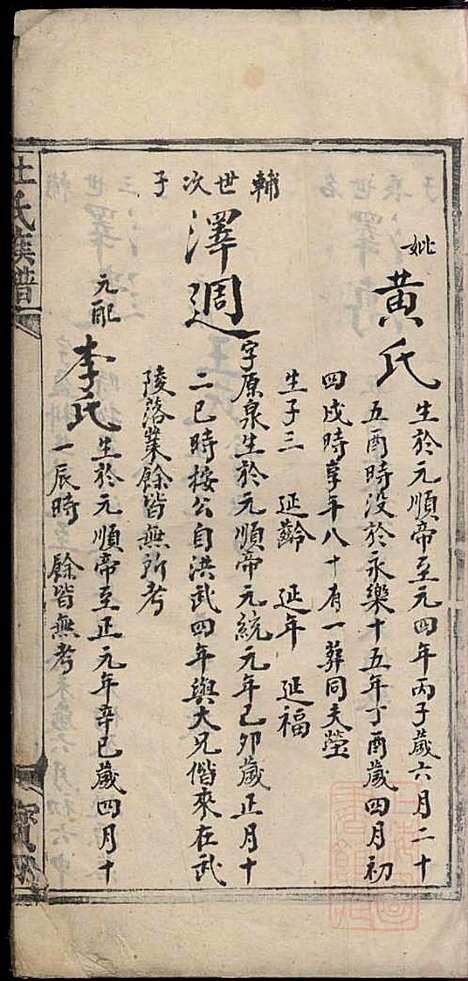 妣
黄氏
生於元順帝至元四年丙子歲六月二十
五酉時没於永樂十五年丁酉歲四月初
四戌時享年八十有一葬同夫塋
生子三 延齡 延年 延福
輔世次子
澤週
字原泉生於元順帝元統元年己卯歲正月十
二巳時按公自洪武四年與大兄偕來在武
陵落業餘皆無所考
元配
李氏
生於元順帝至正元年辛巳歲四月十
一辰時 餘皆無考
杜氏族譜